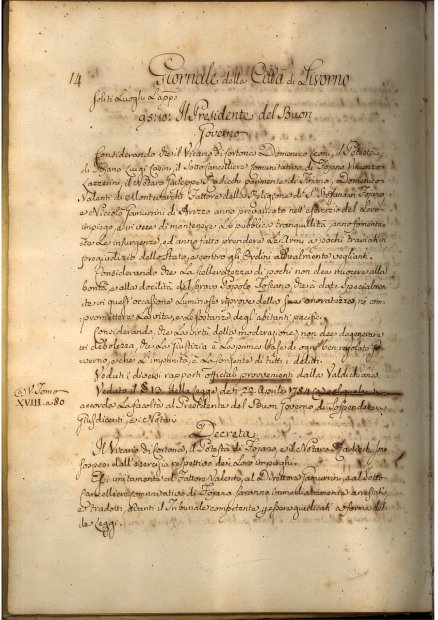 14 Giornale della Città di Livorno
soliti Luoghi
95:10: Il Presidente del Buon
Governo
Considerando che il Vicario di Cortona Domenico Leoni, il Potestà
di Fojano Luigi Carini, il Sotto Cancelliere comunitativo di Fojano Vincenzo
Lazzerini, il Notaro Giuseppe Radicchi parimente di Fojano, Domenico
Valenti di Montevarchi Fattore della Religione di S. Stefano in Fojano
e Niccolò Tanurrini di Arezzo anno prevaricato nell'esercizio del Loro
impiego, e in vece di mantenere La pubblica tranquillità anno fomentato
La insurgenza, ed anno fatto prendere Le Armi a pochi traviati in
pregiudizio dello Stato, e contro gli Ordini attualmente veglianti.
Considerando che La scelleratezza di pochi non dee nuocere alla
bontà, e alla docilità del bravo Popolo Toscano, che à date specialmente
in quest'occasione Luminose riprove della sua onoratezza, nè compromettere
La vita, e Le sostanze degl'abitanti pacifici.
Considerando, che La virtù della moderazione, non dee degenerare
in debolezza, che La Giustizia è La prima base di ogni ben regolato Governo,
e che L'impunità, è La sorgente di tutti i delitti.
Veduti i diversi rapporti officiali provenienti dalla Valdichiana.
Veduto il § 13 della Legge de' 22 Aprile 1784 la quale
accorda La facoltà al Presidente del Buon Governo di Sospendere i
Giusdicenti, ed i Notari
V. Tomo
XVIII. a 80
Decreta
Il Vicario di Cortona, il Potestà di Fojano, e il Notaro Radicchi, son
sospesi dall'esercizio respettivo dei Loro impieghi.
Unitamente al Fattore Valenti, al Direttore Tanurrini, e al Sotto
Cancelliere comunitativo di Fojano saranno immediatamente arrestati,
e tradotti, avanti il Tribunale competente per essere giudicati a forma delle
Leggi.